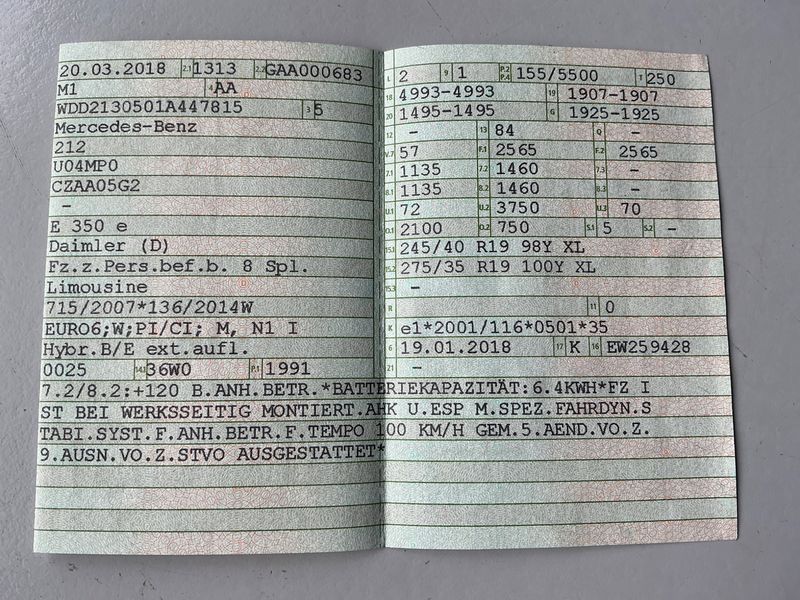 20.03.2018 2.1 1313 2.2 GAA000683
M1 4 AA
WDD2130501A447815 3 6
Mercedes-Benz
212
U04MP0
CZAA05G2
-
E 350 e
Daimler (D)
Fz.z.Pers.bef.b. 8 Spl.
Limousine
715/2007*136/2014W
EURO6;W;PI/CI; M, N1 I
Hybr.B/E ext.aufl.
0025 14.1 36W0 P.1 1991
L 2 9 1 P.2 P.4 155/5500 T 250
18 4993-4993 19 1907-1907
20 1495-1495 G 1925-1925
12 - 13 84 Q -
V.7 57 F.1 2565 F.2 2565
7.1 1135 7.2 1460 7.3 -
8.1 1135 8.2 1460 8.3 -
U.1 72 U.2 3750 U.3 70
O.1 2100 O.2 750 S.1 5 S.2 -
15.1 245/40 R19 98Y XL
15.2 275/35 R19 100Y XL
15.3 -
R 11 0
K e1*2001/116*0501*35
6 19.01.2018 17 K 16 EW259428
21 -
7.2/8.2:+120 B.ANH.BETR.*BATTERIEKAPAZITÄT:6.4KWH*FZ I
ST BEI WERKSSEITIG MONTIERT.AHK U.ESP M.SPEZ.FAHRDYN.S
TABI.SYST.F.ANH.BETR.F.TEMPO 100 KM/H GEM.5.AEND.VO.Z.
9.AUSN.VO.Z.STVO AUSGESTATTET*